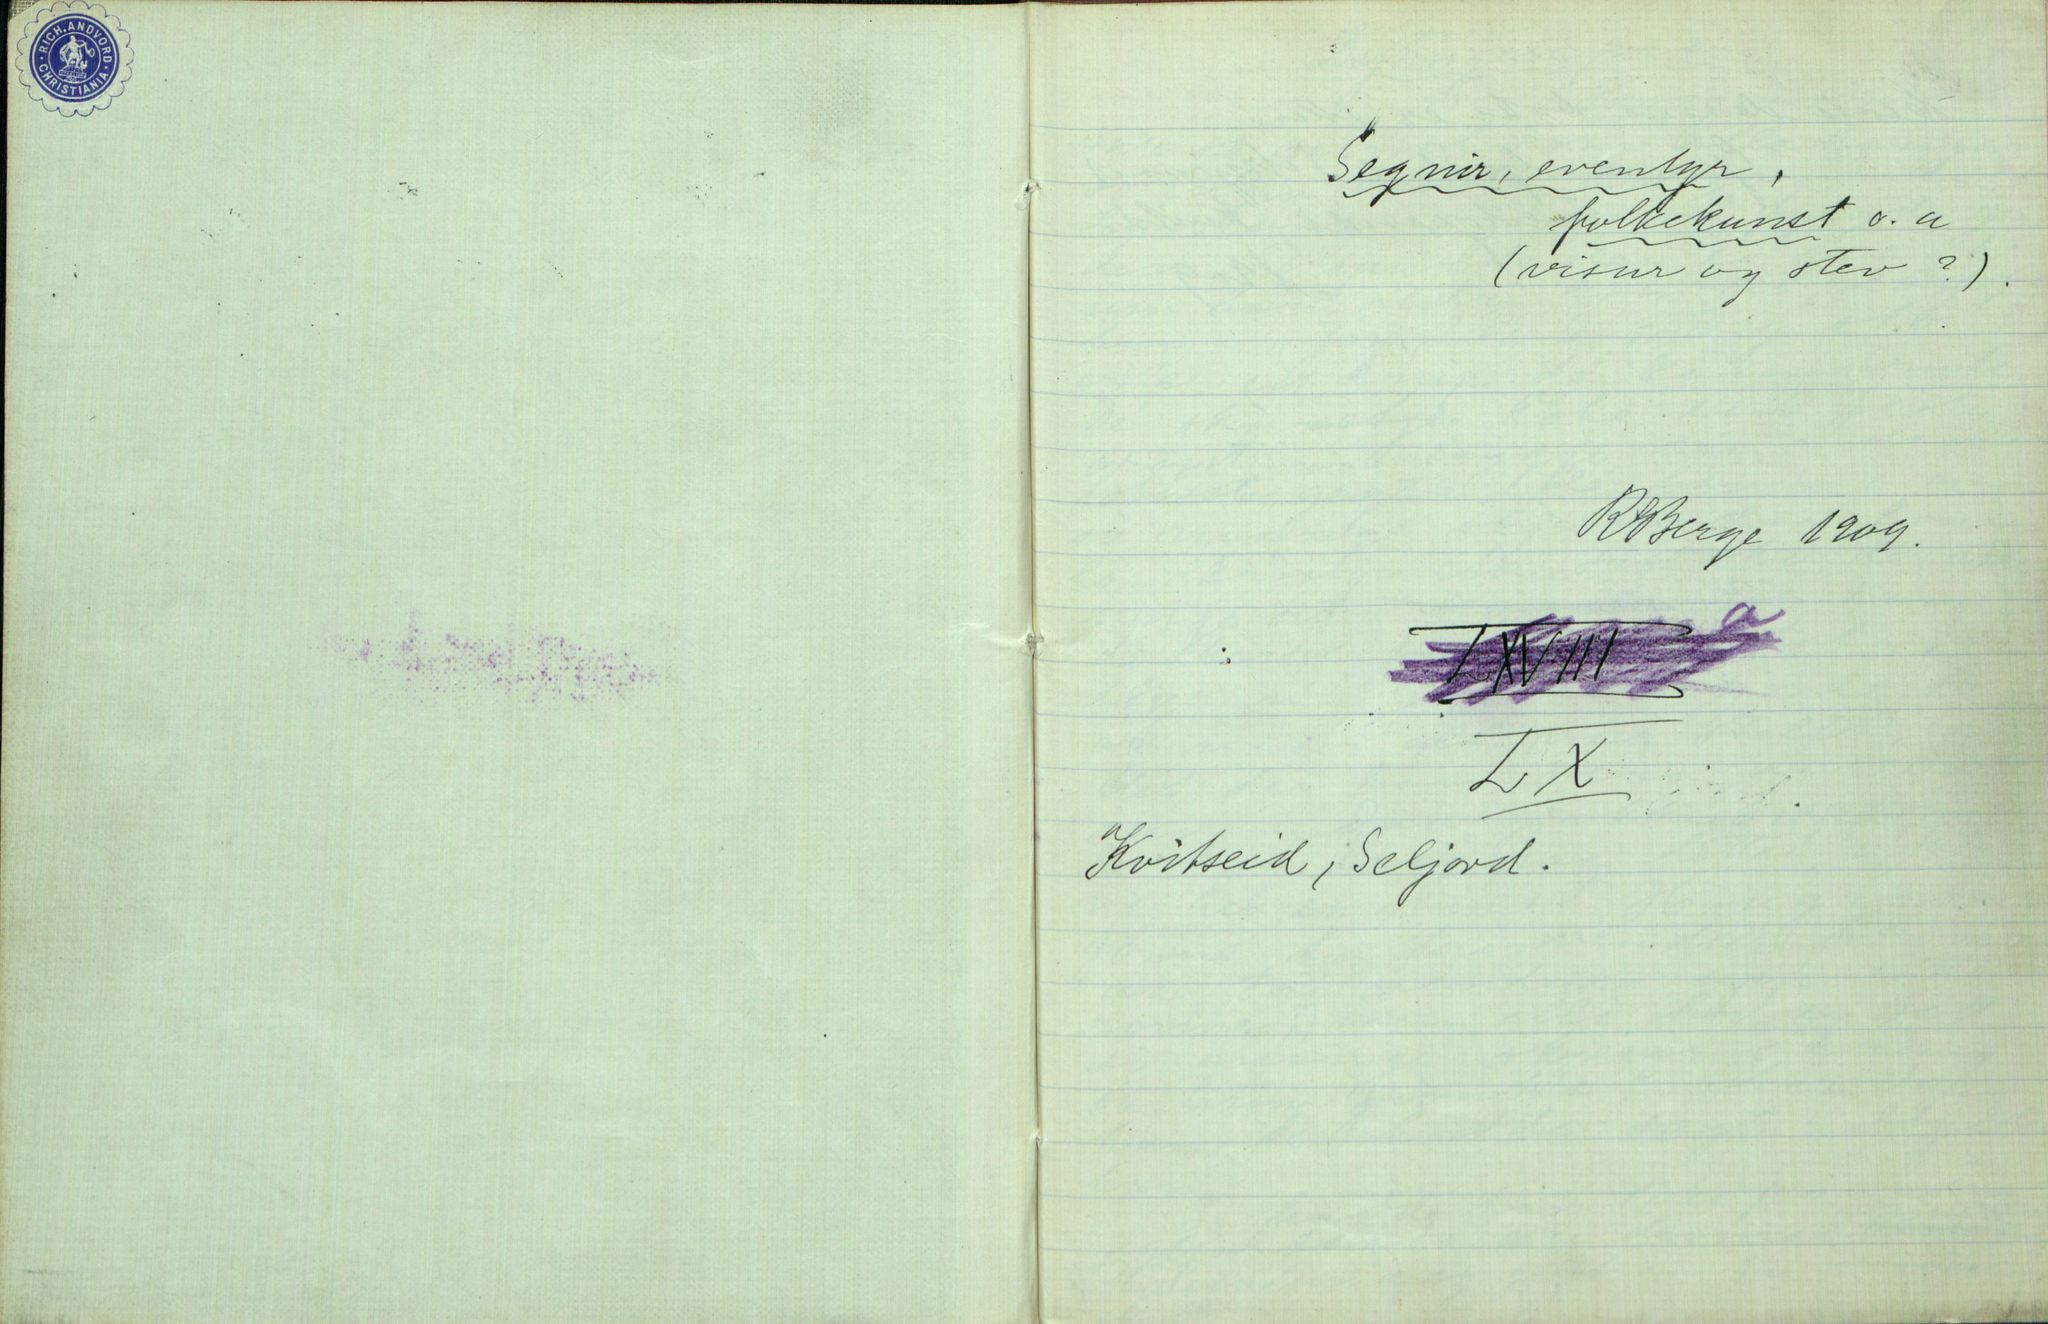 RICH. ANDVORD
CHRISTIANIA
Segnir, eventyr,
folkekunst o. a
(visur og stev?).
RBerge 1909.
LXVIII a
LX
Kvitseid, Seljord.